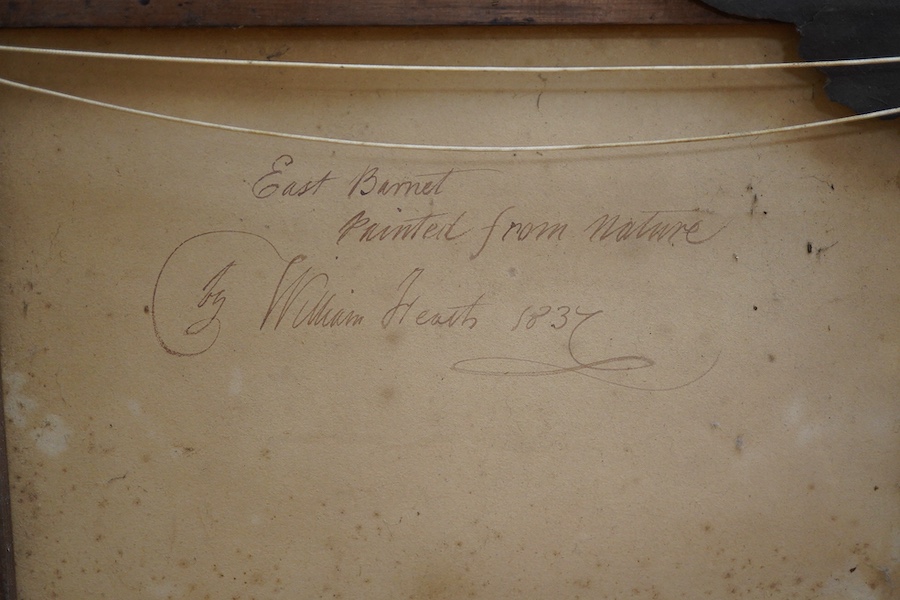 East Barnet
Painted from Nature
by William Heath 1837